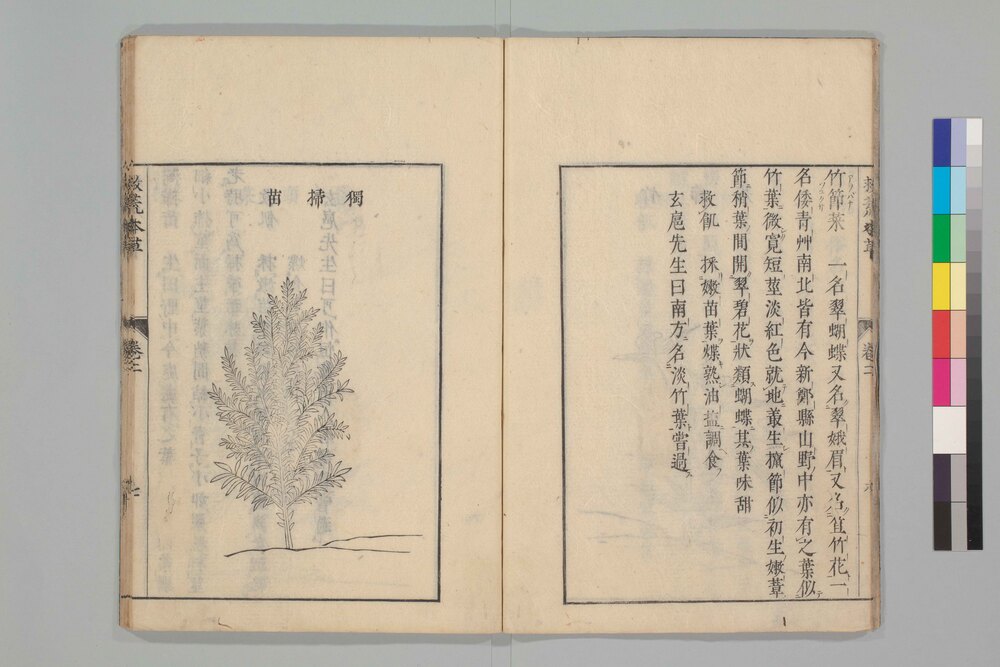 竹節菜 一名翠蝴蝶又名翠娥眉又名笪竹花一
名倭青艸南北皆有今新鄭縣山野中亦有之葉似
竹葉微寬短莖淡紅色就地叢生攛節似初生嫩葦
節稍葉間開翠碧花狀類蝴蝶其葉味甜
救飢 採嫩苗葉煠熟油盐調食
玄扈先生曰南方名淡竹葉嘗過
救荒本草
卷二
獨掃苗
救荒本草
卷之二
七